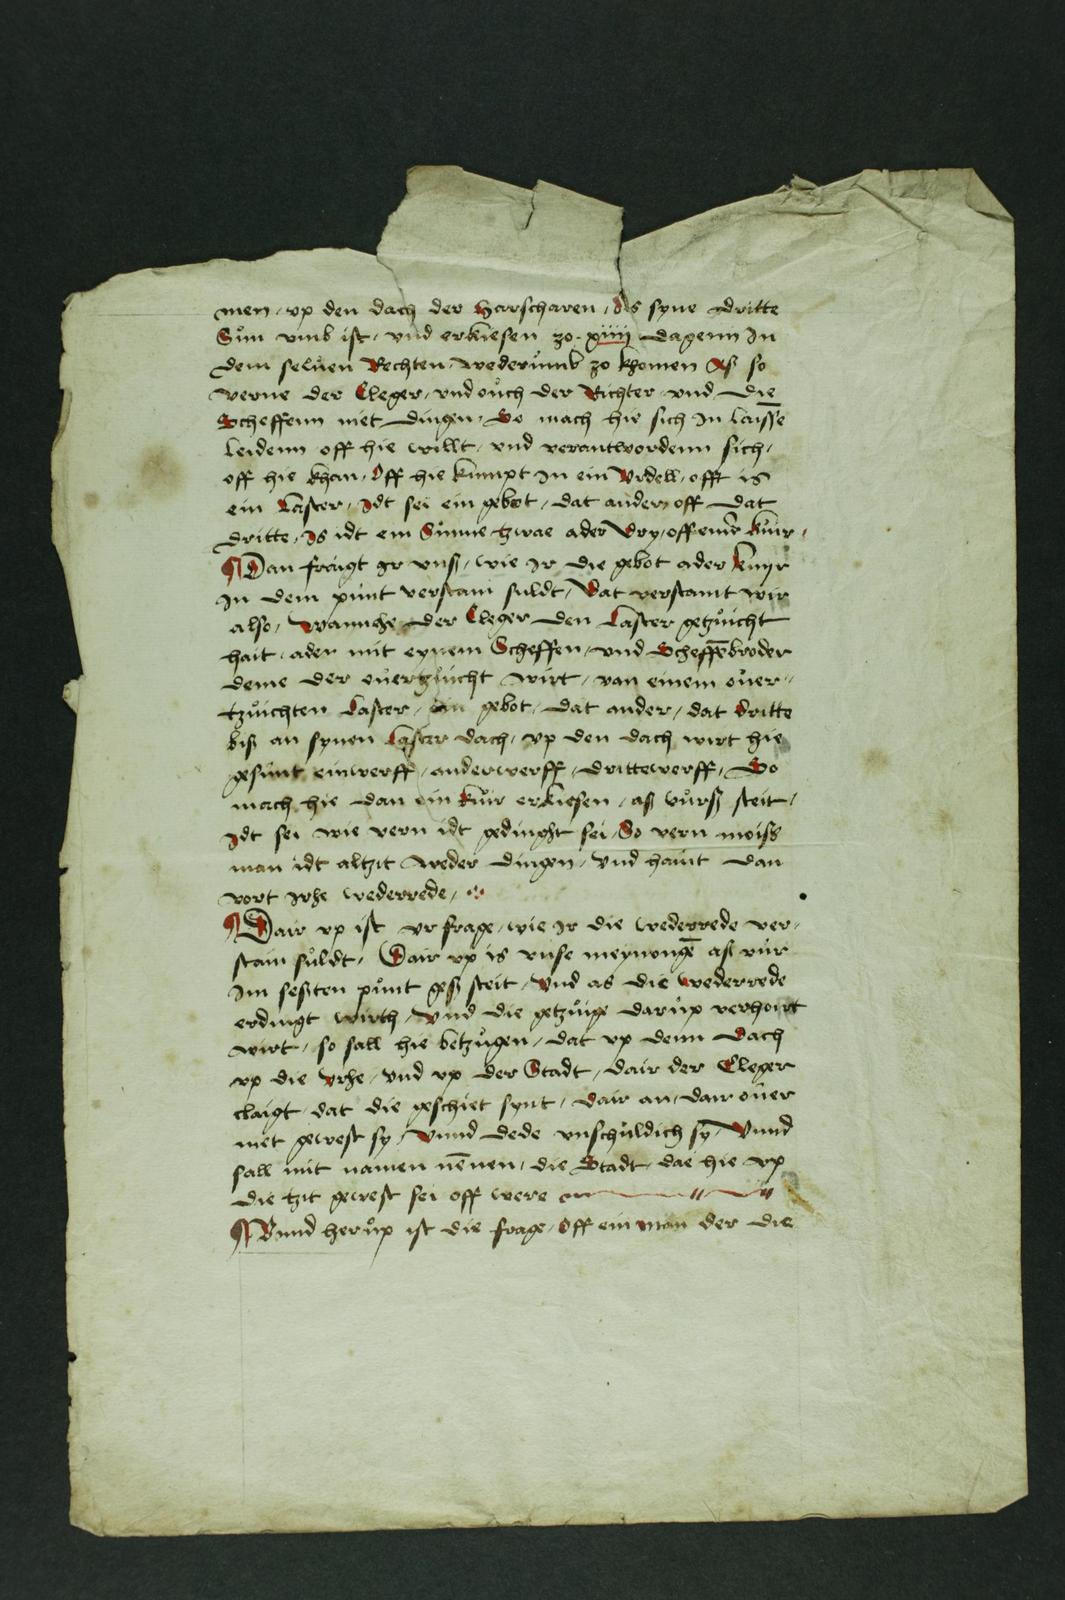 men, vp den dach der Harscharen, As syne dritte
Sůn vmb ist, vnd erkiesen zo xiiij dagenn In
dem seluen Rechten, wederůmb zo khomen As so
verne der Cleger, vnd oůch der Richter, vnd die
Scheffenn niet dingen, So mach hie sich In laisse
leidenn off hie willt, vnd verantwordenn sich,
off hie khan, Off hie kumpt In ein Vrdell, offt is
ein Laster, Idt sei ein gebot, dat ander, off dat
dritte, Is idt ein Sůnne tzwae ader Dry, off einr kůir,
¶ Dan fraigt Ir vnß, wie Ir die gebot ader kuyr
In dem punt verstain suldt, Dat verstaint wir
also, Wannehe der Cleger den Laster getzůicht
hait, ader mit eynem Scheffen, vnd Scheffēbroder
deme der ouertzůicht wirt, van einem oůer,,
tzůichten Laster, ein gebot, dat ander, dat dritte
biß an synen Laster dach, vp den dach wirt hie
gesunt, einwerff, anderwerff, drittewerff, So
mach hie dan ein kůir erkiesen, aß vůrß steit,
Idt sei wie vern idt gedinght sei, So vern moiß
man idt altzit weder dingen, Vnd haint dan
vort Irhe wederrede,
¶ Dair vp ist vr frage, wie Ir die wederrede ver,
stain sůldt, Dair vp is vnse meynongē aß vur
Im sesten půnt geß steit, Vnd as die wederrede
erdingt wirth, Vnd die getzůige darůp verhoirt
wirt, so sall hie betzůgen, dat vp denn Dach
vp die Vrhe, Vnd vp der Stadt, dair der Cleger
claigt, dat die geschiet synt, dair an, dair oůer
niet gewest sy, Vnnd dede vnschůldich sy, Vnnd
sall mit namen nēnen, die Stadt, dae hie vp
die tzit gewest sei off were
¶ Vnnd herůp ist die frage, Off ein man der die